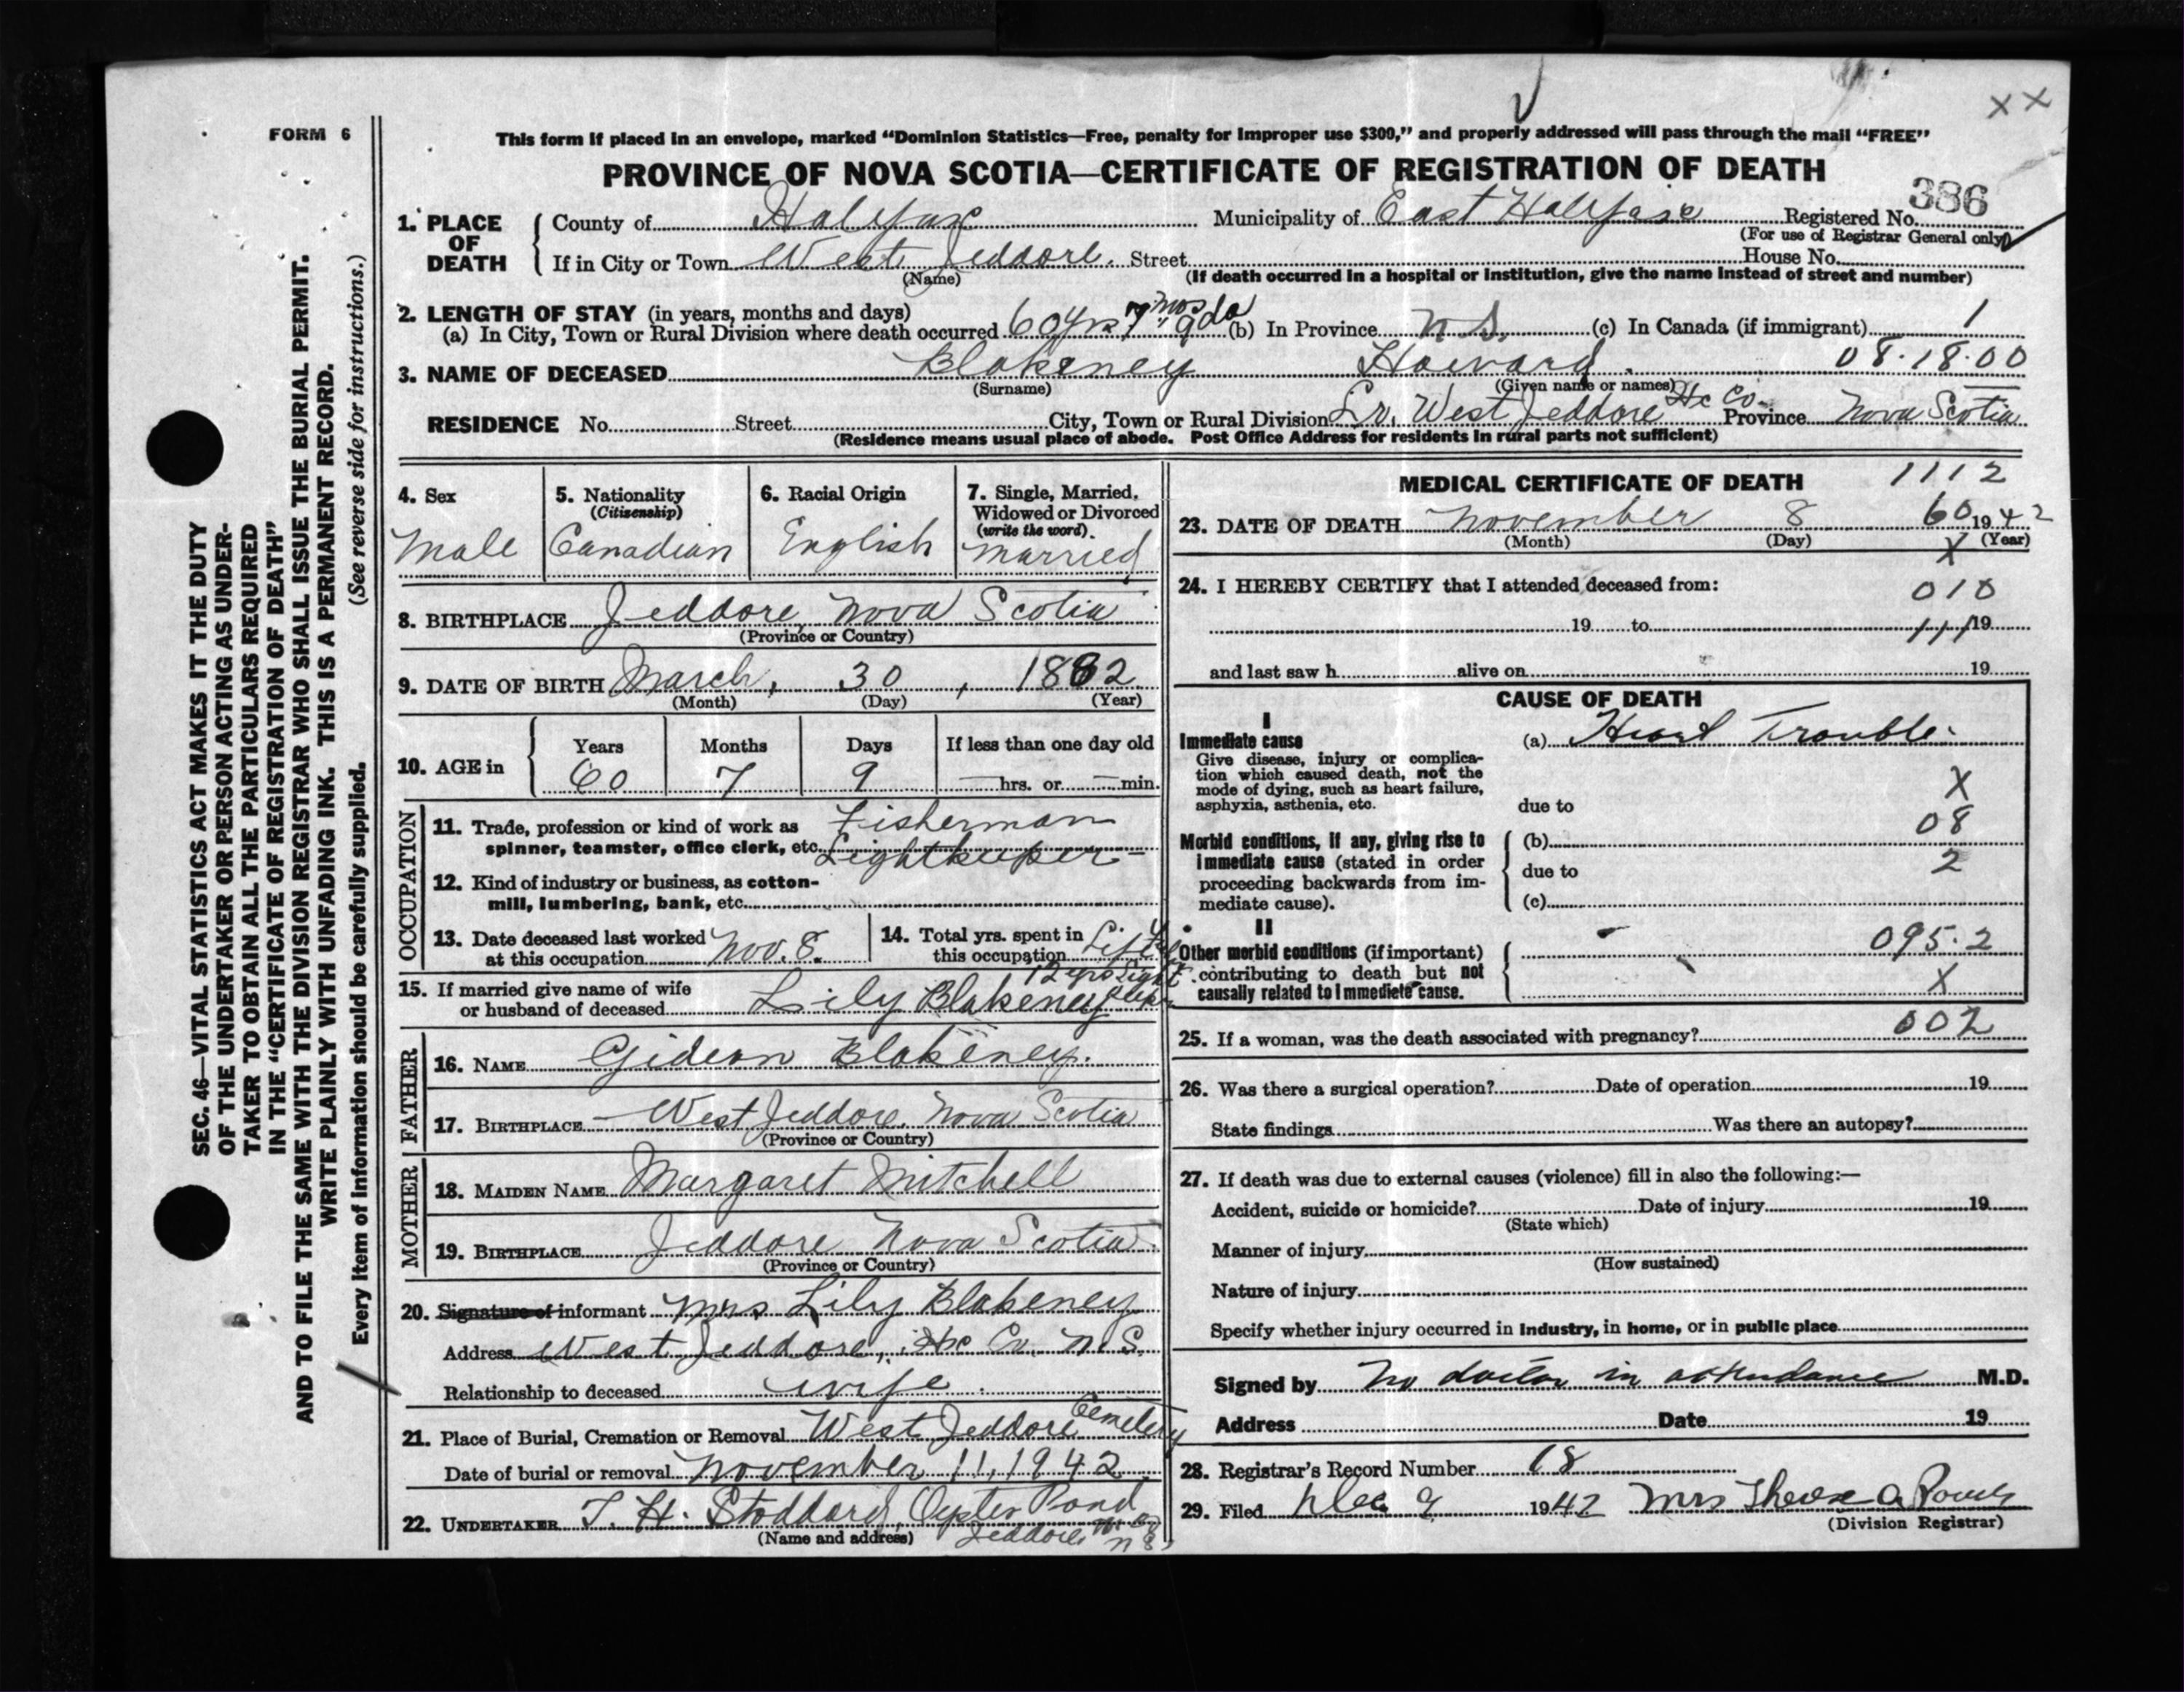 FORM 6
This form if placed in an envelope, marked “Dominion Statistics—Free, penalty for improper use $300,” and properly addressed will pass through the mail “FREE”
PROVINCE OF NOVA SCOTIA—CERTIFICATE OF REGISTRATION OF DEATH
XX
386
1. PLACE OF DEATH
County of Halifax Municipality of East Halifax Registered No.
(For use of Registrar General only)
If in City or Town West Jeddore. Street House No.
(Name) (If death occurred in a hospital or institution, give the name instead of street and number)
2. LENGTH OF STAY (in years, months and days)
(a) In City, Town or Rural Division where death occurred 60 yrs 7 mos 9 da (b) In Province N S. (c) In Canada (if immigrant) 1
3. NAME OF DECEASED Blakeney Howard. 08.18.00
(Surname) (Given name or names)
RESIDENCE No. Street City, Town or Rural Division Lr. West Jeddore Hx Co. Province Nova Scotia
(Residence means usual place of abode. Post Office Address for residents in rural parts not sufficient)
4. Sex
Male
5. Nationality
(Citizenship)
Canadian
6. Racial Origin
English
7. Single, Married,
Widowed or Divorced
(write the word).
Married
8. BIRTHPLACE Jeddore, Nova Scotia
(Province or Country)
9. DATE OF BIRTH March, 30, 1882
(Month) (Day) (Year)
10. AGE in
Years Months Days If less than one day old
60 7 9 — hrs. or — min.
OCCUPATION
11. Trade, profession or kind of work as Fisherman
spinner, teamster, office clerk, etc. Lightkeeper
12. Kind of industry or business, as cotton-
mill, lumbering, bank, etc.
13. Date deceased last worked
at this occupation Nov. 8.
14. Total yrs. spent in
this occupation Life
12 yrs Light
15. If married give name of wife
or husband of deceased Lily Blakeney
FATHER
16. NAME Gideon Blakeney.
17. BIRTHPLACE West Jeddore, Nova Scotia
(Province or Country)
MOTHER
18. MAIDEN NAME Margaret Mitchell
19. BIRTHPLACE Jeddore Nova Scotia
(Province or Country)
20. Signature of informant Mrs Lily Blakeney
Address West Jeddore, Hx Co. N.S.
Relationship to deceased wife.
21. Place of Burial, Cremation or Removal West Jeddore Cemetery
Date of burial or removal November 11, 1942
22. UNDERTAKER T. H. Stoddard, Oyster Pond
(Name and address) Jeddore N.S.
MEDICAL CERTIFICATE OF DEATH 1112
23. DATE OF DEATH November 8 60 1942
(Month) (Day) X (Year)
24. I HEREBY CERTIFY that I attended deceased from: 010
19 to 111 19
and last saw h alive on 19
CAUSE OF DEATH
I
Immediate cause
Give disease, injury or complica-
tion which caused death, not the
mode of dying, such as heart failure,
asphyxia, asthenia, etc.
(a) Heart Trouble.
X
due to
08
Morbid conditions, if any, giving rise to
immediate cause (stated in order
proceeding backwards from im-
mediate cause).
(b)
due to 2
(c)
II
Other morbid conditions (if important)
contributing to death but not
causally related to immediate cause.
095.2
X
25. If a woman, was the death associated with pregnancy? 002
26. Was there a surgical operation? Date of operation 19
State findings Was there an autopsy?
27. If death was due to external causes (violence) fill in also the following:—
Accident, suicide or homicide? Date of injury 19
(State which)
Manner of injury
(How sustained)
Nature of injury
Specify whether injury occurred in industry, in home, or in public place
Signed by No doctor in attendance M.D.
Address Date 19
28. Registrar's Record Number 18
29. Filed Dec 9 1942 Mrs
(Division Registrar)
SEC. 46—VITAL STATISTICS ACT MAKES IT THE DUTY
OF THE UNDERTAKER OR PERSON ACTING AS UNDER-
TAKER TO OBTAIN ALL THE PARTICULARS REQUIRED
IN THE “CERTIFICATE OF REGISTRATION OF DEATH”
AND TO FILE THE SAME WITH THE DIVISION REGISTRAR WHO SHALL ISSUE THE BURIAL PERMIT.
WRITE PLAINLY WITH UNFADING INK. THIS IS A PERMANENT RECORD.
Every item of information should be carefully supplied. (See reverse side for instructions.)